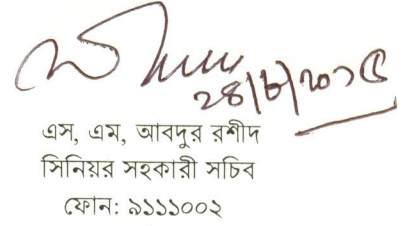 ২৪/৮/২০১৫
এস, এম, আবদুর রশীদ
সিনিয়র সহকারী সচিব
ফোন: ৯১১১০০২